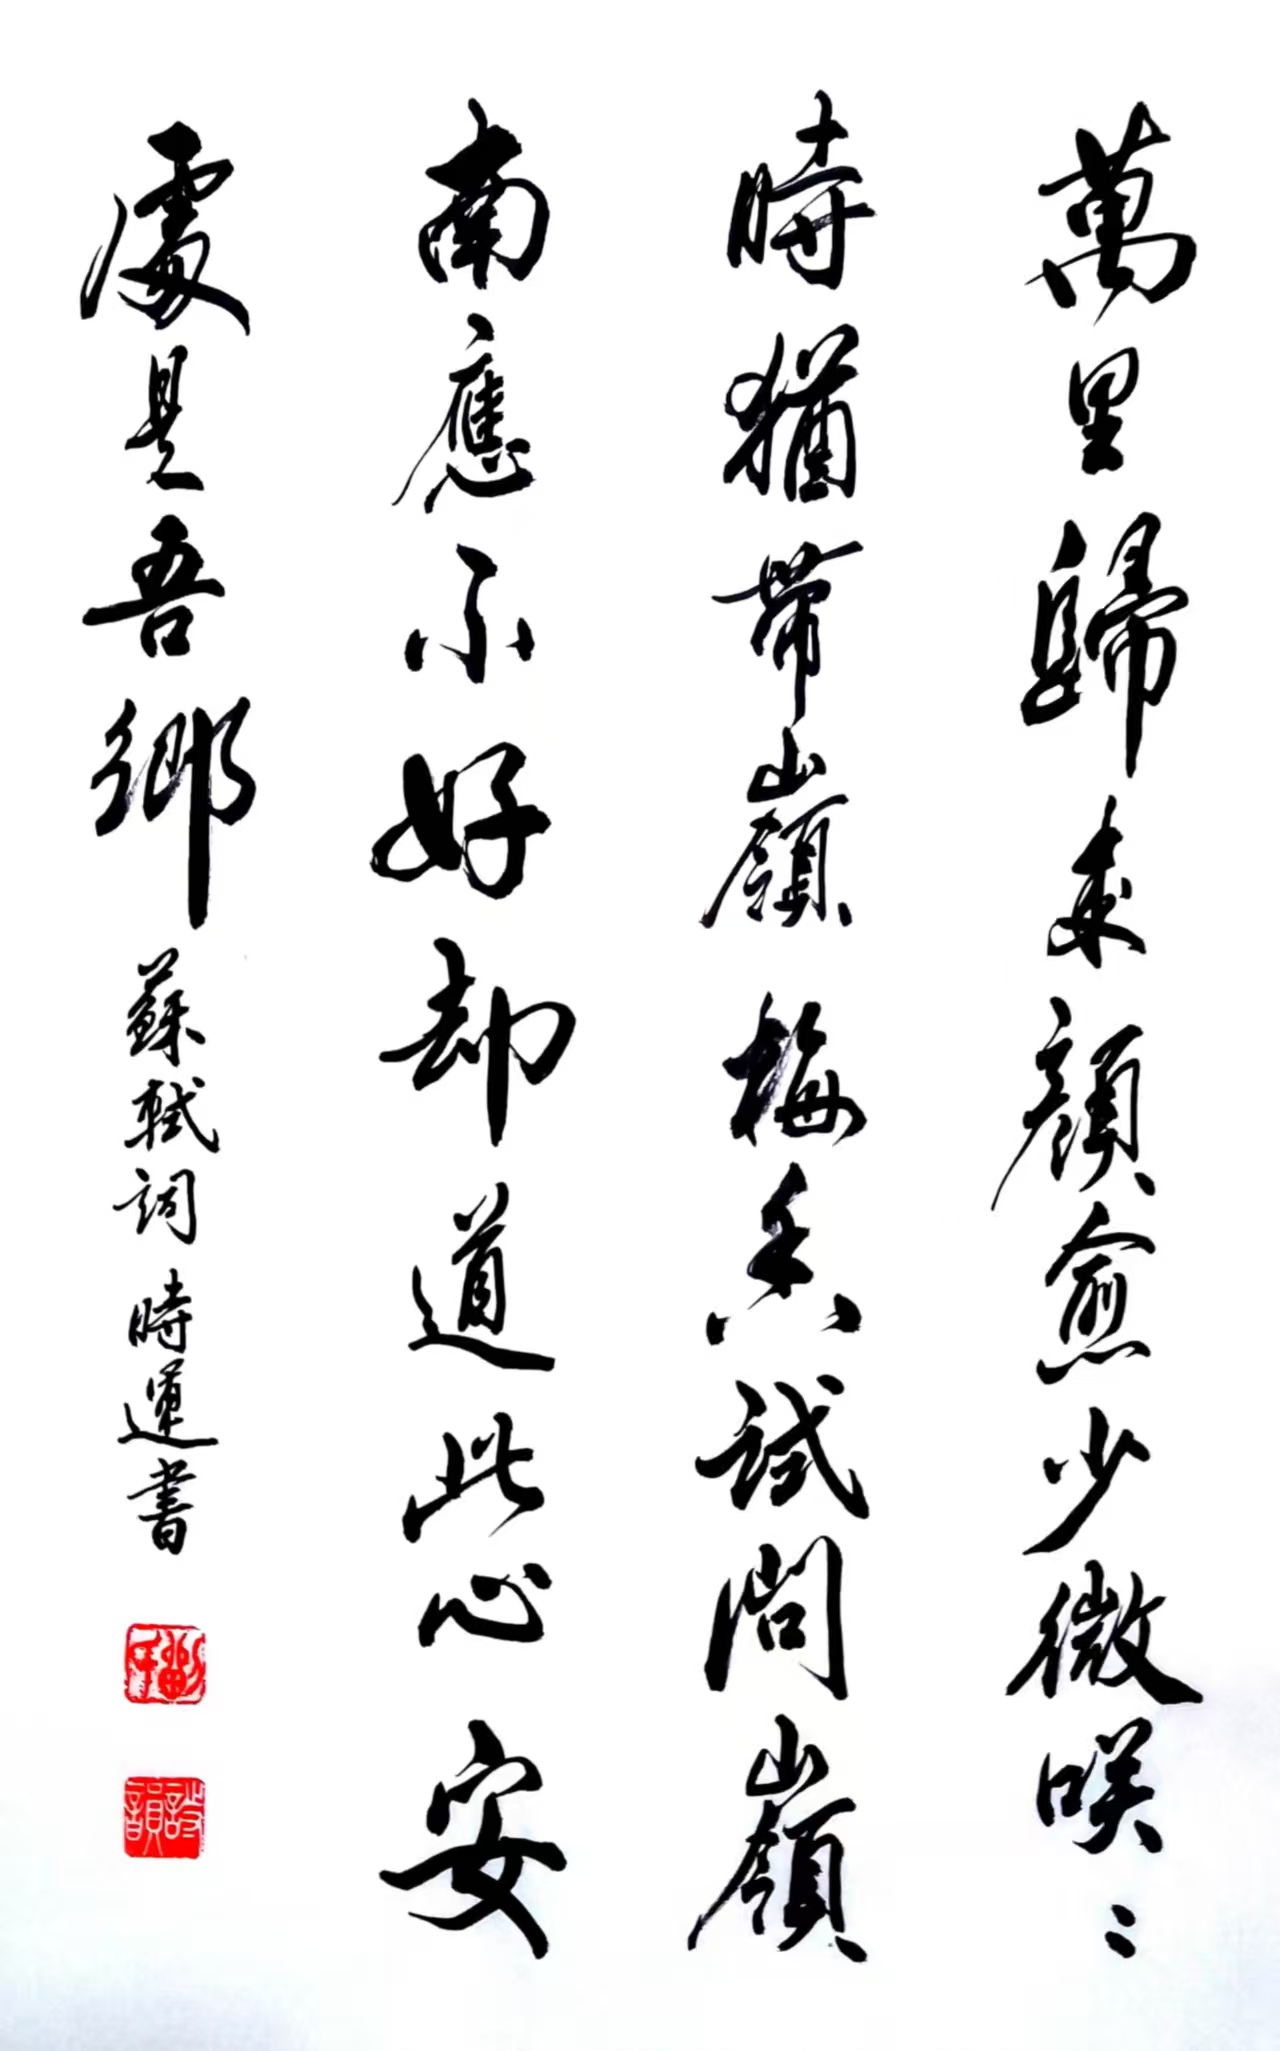 萬里歸来顔愈少微咲〻
時猶帶嶺梅香試問嶺
南應不好却道此心安
處是吾鄉
蘇軾詞時運書